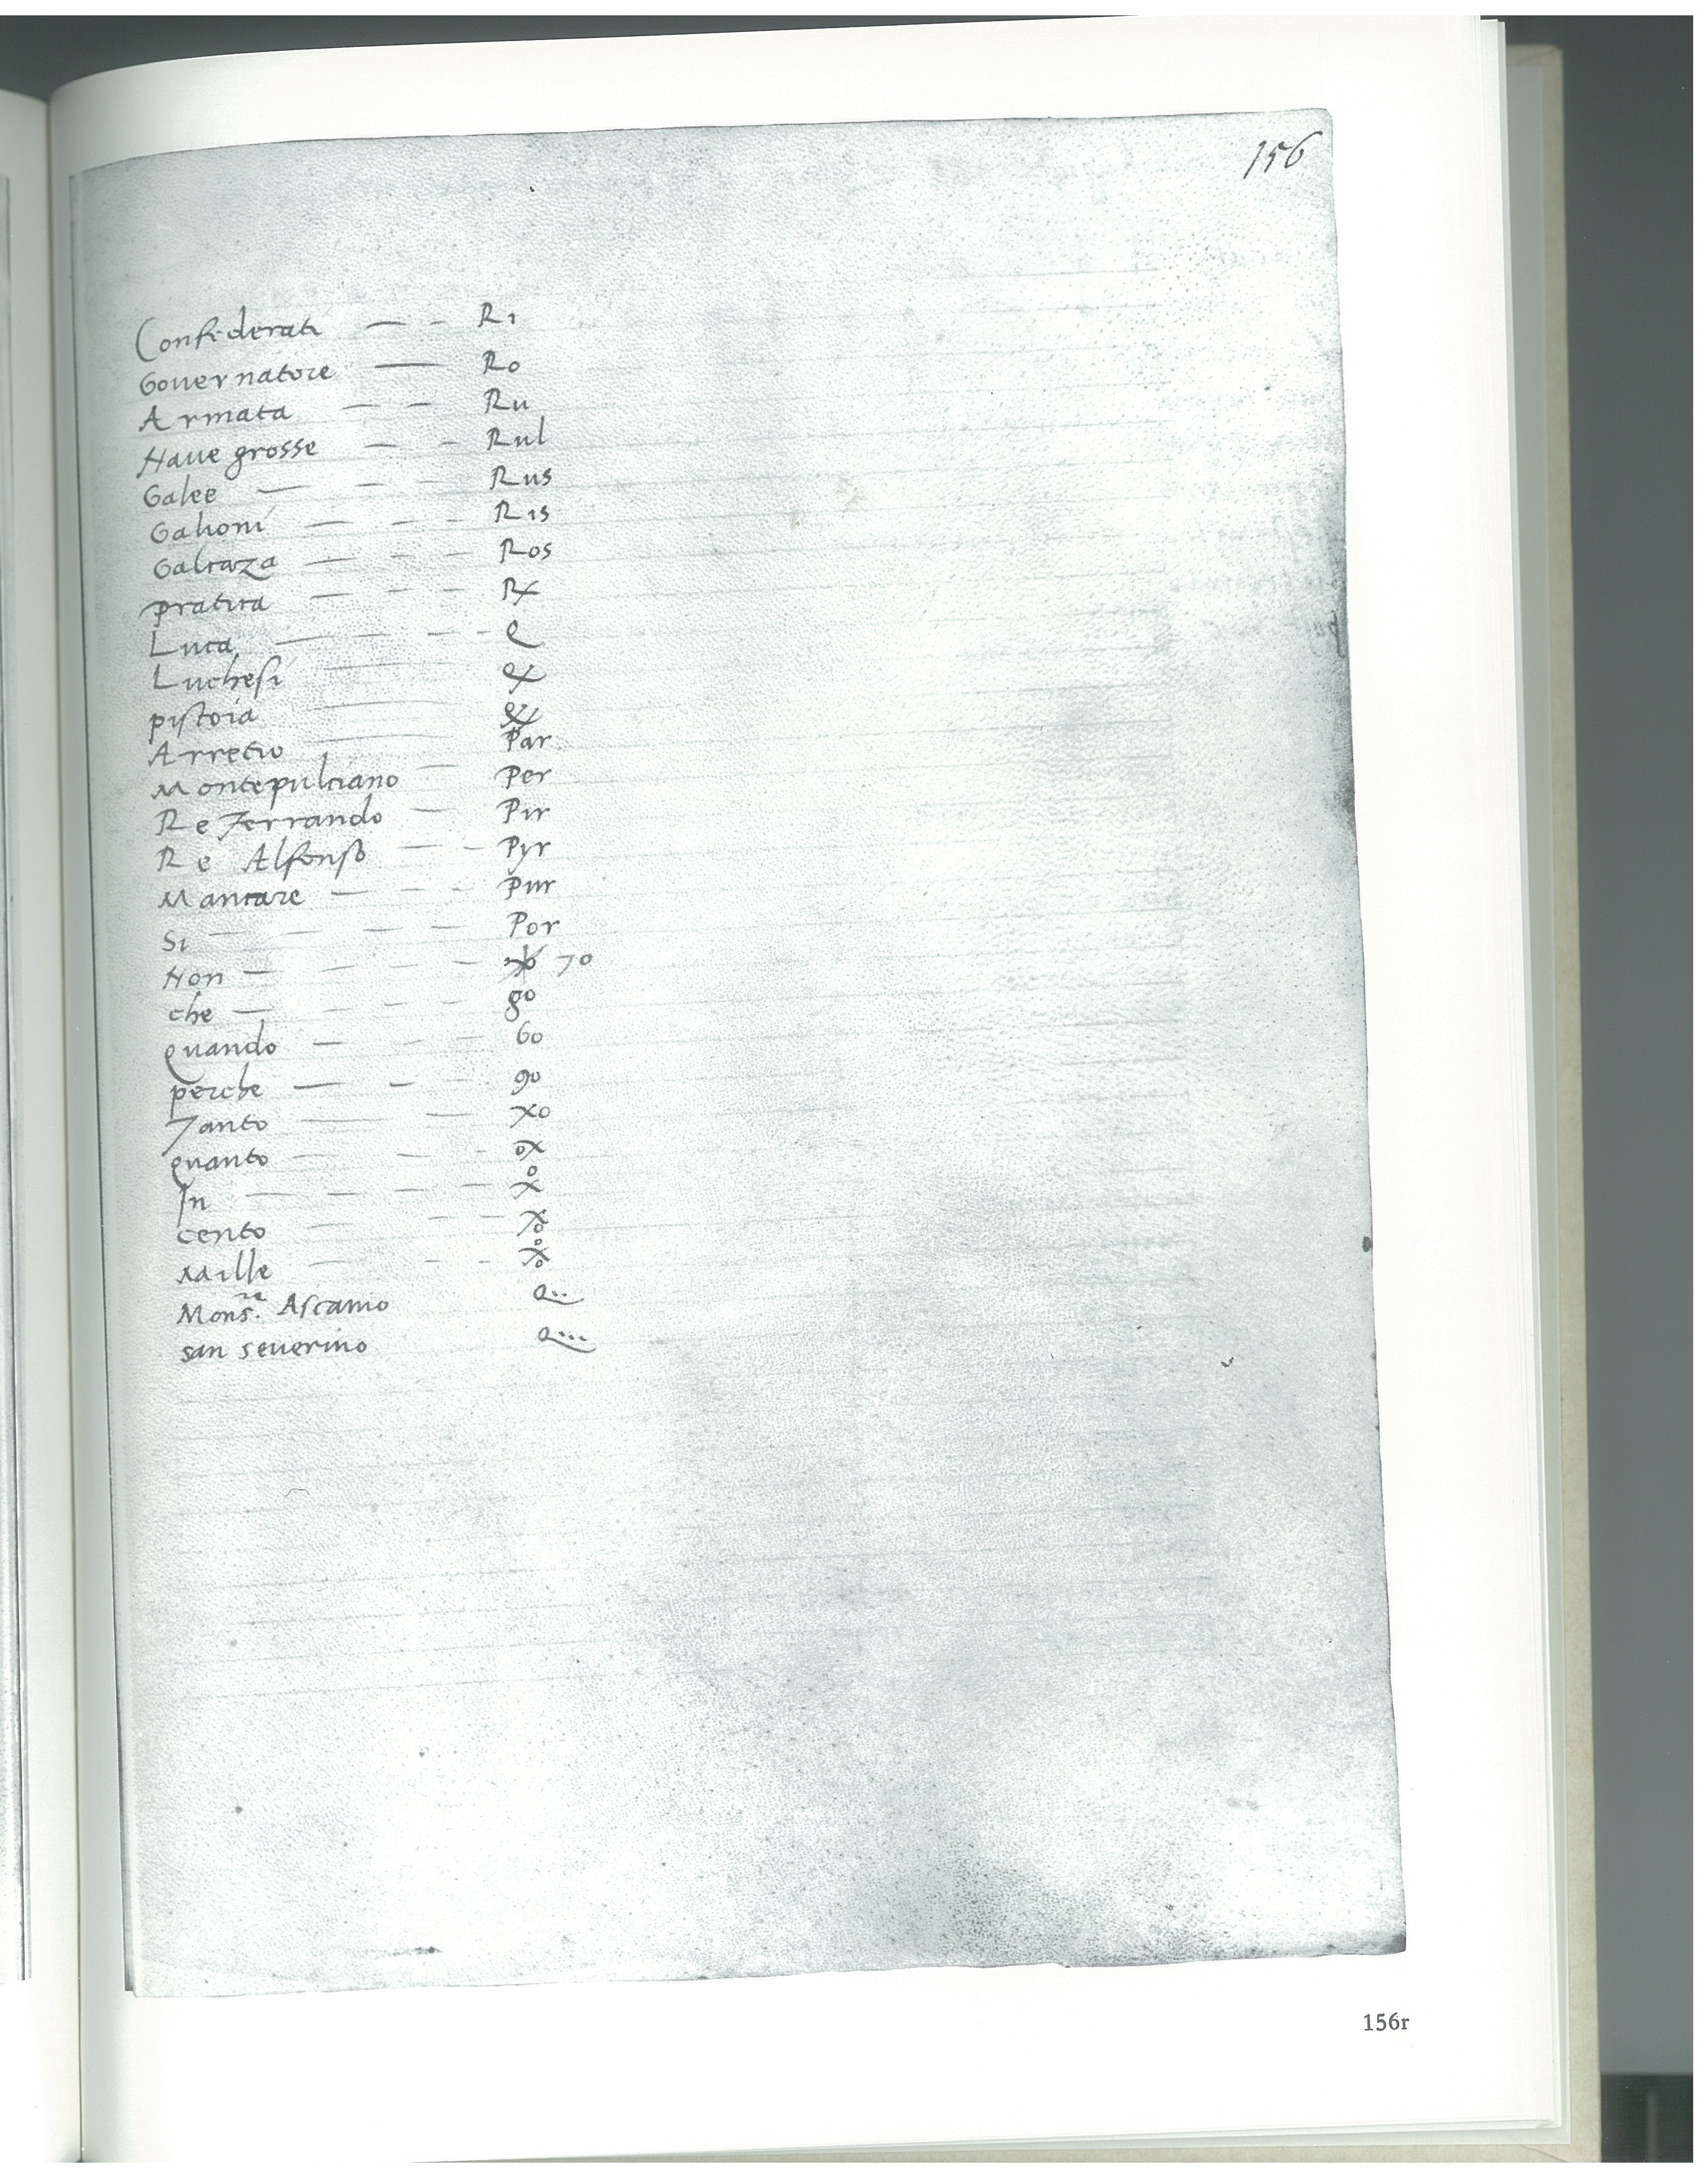 156
Confederati — - R1
Gouernatore — Ro
Armata — - Ru
Naue grosse — - Rul
Galee — - - Rus
Galioni — - - R1s
Galeaza — - - Ros
pratica — - - Rx
Luca — - - - e
Luchesi
pistoia
Arretio Par
Montepulciano — Per
Re Ferrando — Pir
Re Alfonso — - Pyr
Mancare — - - Pur
Si — - - - Por
Non — - - - 70
che — - - - 80
quando — - - 60
perche — - - 90
Tanto — - xo
quanto — - - ox
In — - - -
cento — - -
Mille — - -
Mons.re Ascanio
san seuerino
156r